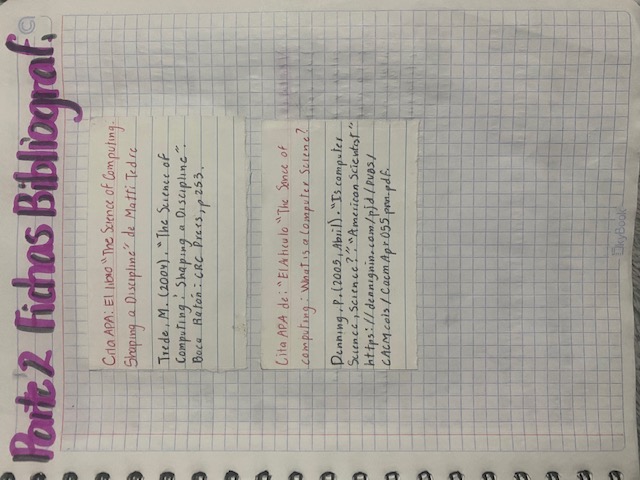 Parte 2 Fichas Bibliograf.
Cita APA: El libro "The Science of Computing-
Shaping a Discipline" de Matti Tedre
Trede, M. (2004). "The Science of
Computing: Shaping a Discipline".
Boca Ratón: CRC Press, p 253.
Cita APA de: "El Artículo "The Sance of
computing: What is a Computer Science?
Denning, P. (2005, Abril). "Is computer
Science, Science?" "American Scientist"
https://dennignin.com/pjd/PUBS/
CACM cols/CacmApr055 pnn.pdf.
SkyBook